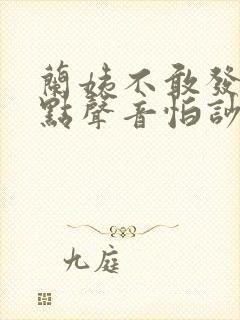 蘭姨不敢發
點聲音怕訬
九庭